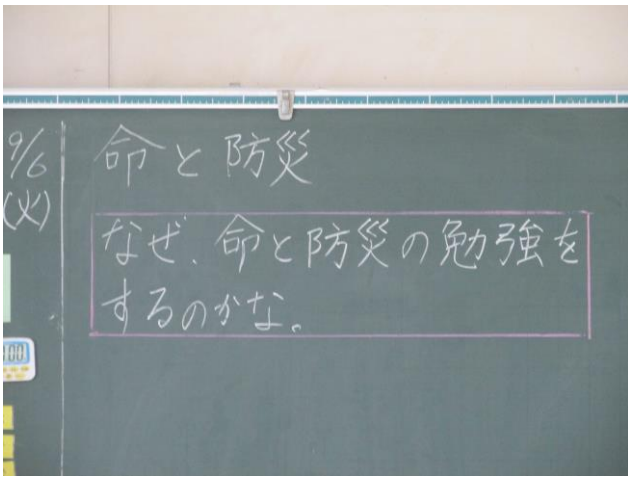 9/6
(火)
命と防災
なぜ、命と防災の勉強を
するのかな。